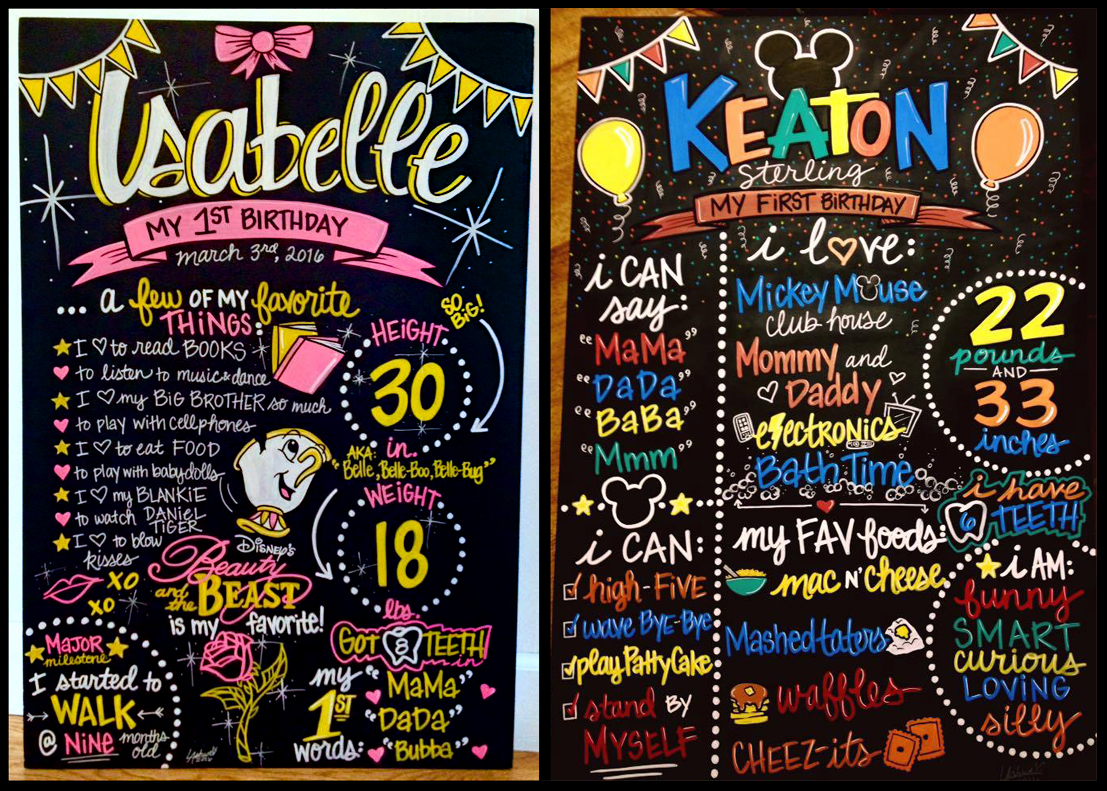 Isabelle
MY 1ST BIRTHDAY
march 3rd, 2016
... a few OF MY favorite
THINGS
I ♡ to read BOOKS
to listen to music & dance
I ♡ my BIG BROTHER so much
to play with cellphones
I ♡ to eat FOOD
to play with babydolls
I ♡ my BLANKIE
to watch DANIEL
TIGER
I ♡ to blow
kisses
XO
XO
SO
BIG!
HEIGHT
30
in.
AKA:
"Belle, Belle-Boo, Belle-Bug"
WEIGHT
18
lbs.
DISNEY'S
Beauty
and the BEAST
is my favorite!
MAJOR
milestone
I started to
WALK
@ NINE months
old
GOT 8 TEETH
in
my
1ST
words:
"MaMa"
"DaDa"
"Bubba"
KEATON
sterling
MY FIRST BIRTHDAY
i CAN
say:
"MaMa"
"DaDa"
"BaBa"
"Mmm"
i CAN:
high-FIVE
wave BYE-BYE
play PattyCake
stand BY
MYSELF
i love:
Mickey Mouse
club house
Mommy and
Daddy
electronics
Bath Time
my FAV foods:
mac N' cheese
Mashed taters
waffles
CHEEZ-its
22
pounds
AND
33
inches
i have
6 TEETH
i AM:
funny
SMART
curious
LOVING
silly